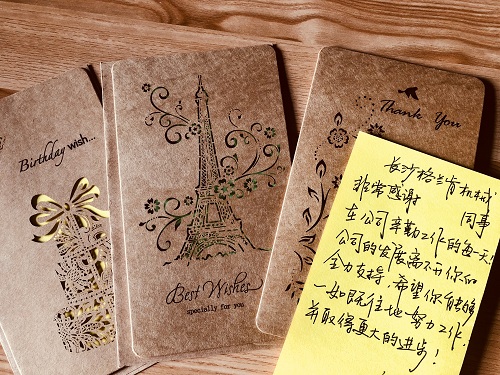 Birthday wish...
Best Wishes
specially for you
Thank You
长沙格兰肯机械
非常感谢 同事
在公司辛勤工作的每一天
公司的发展离不开你的
全力支持,希望你能够
一如既往地努力工作,
并取得更大的进步!